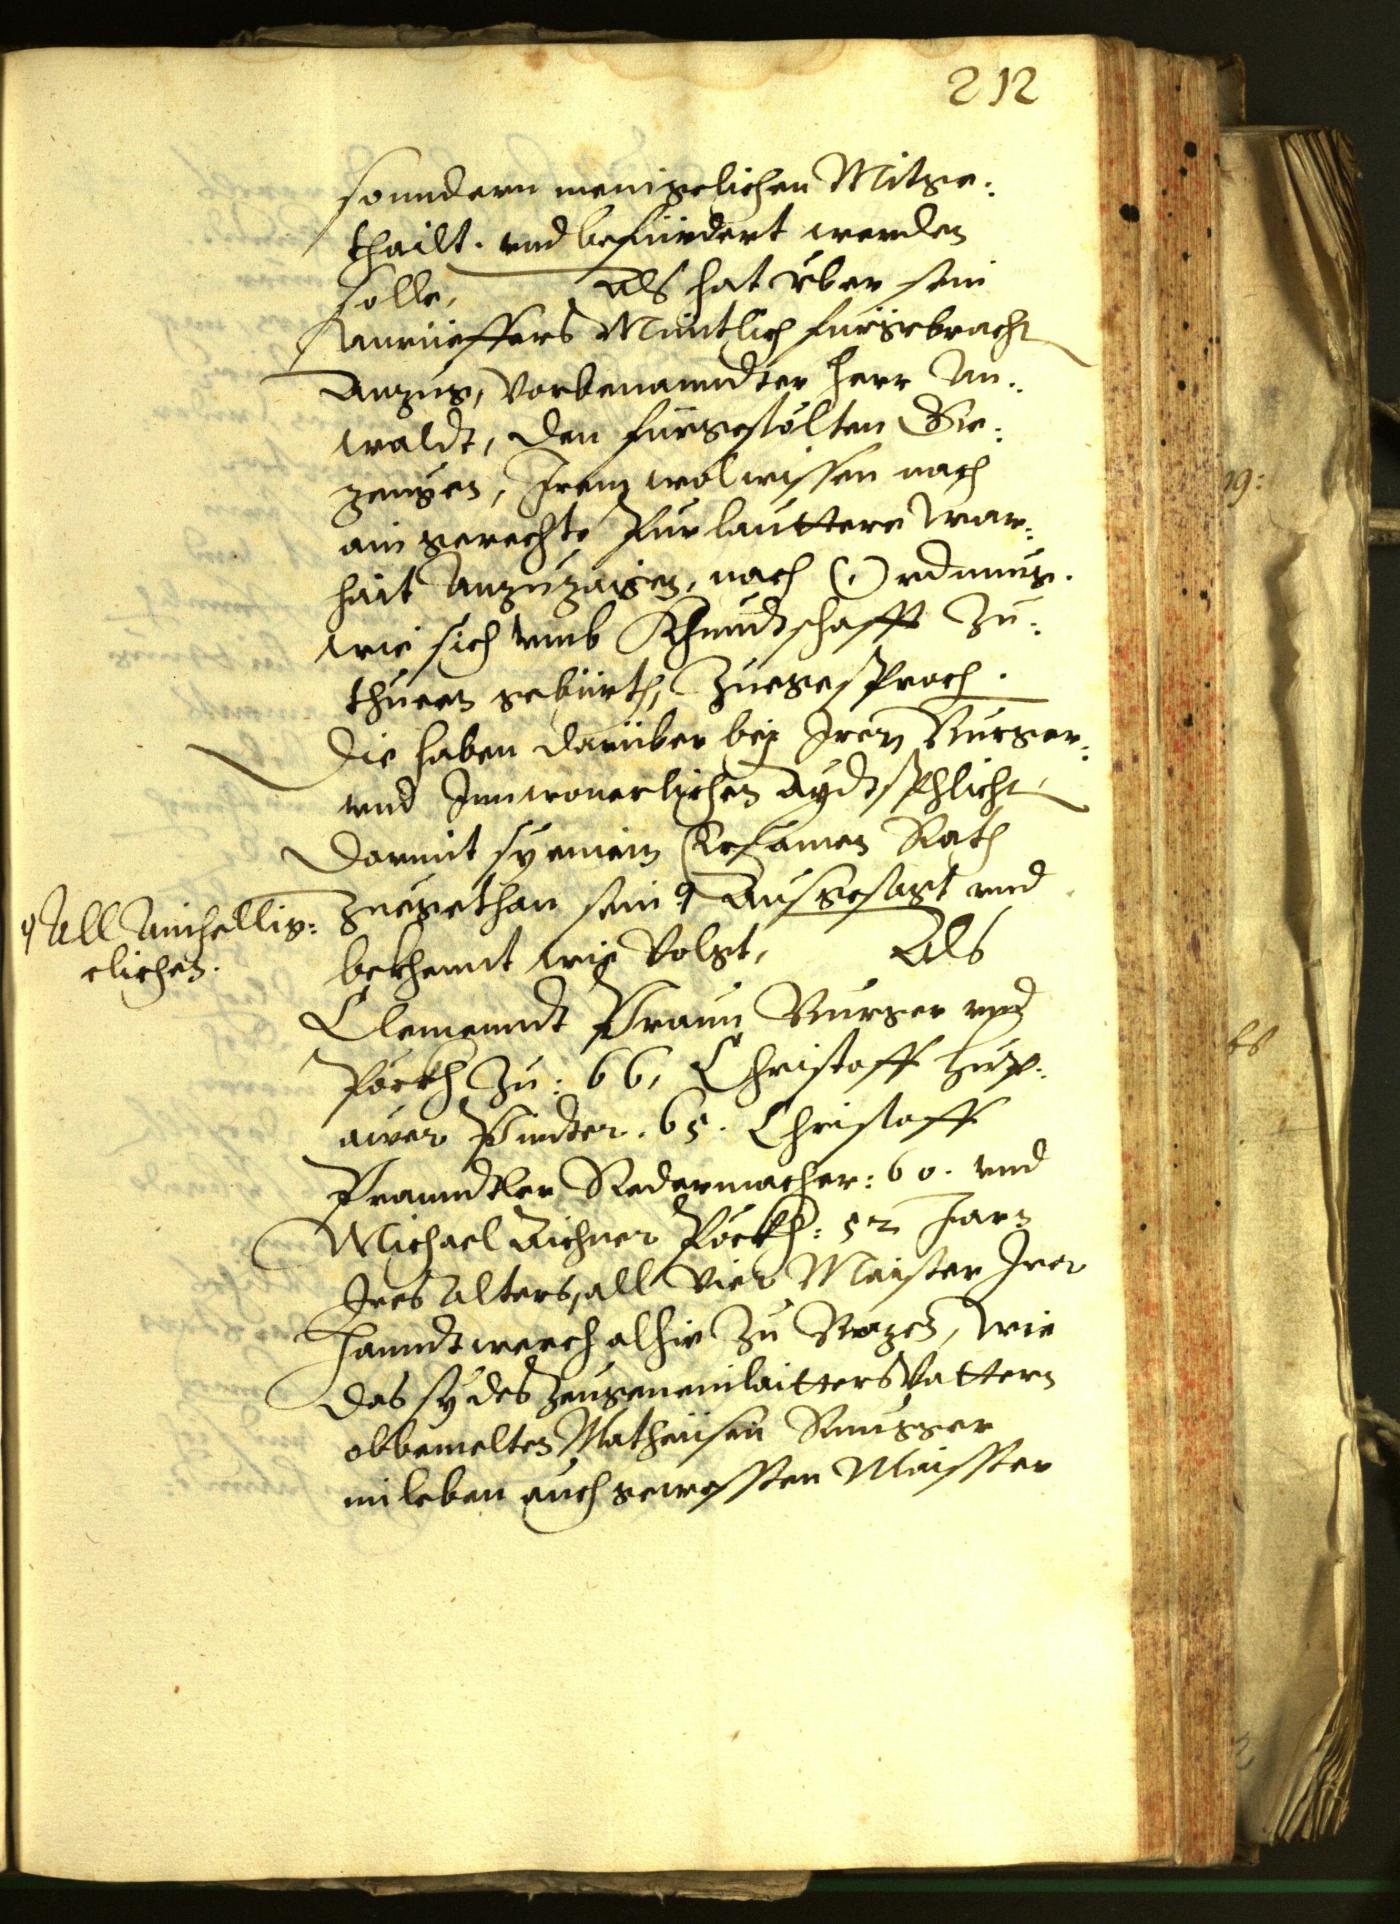 212
sonndern menigelichen Mitge:
thailt. vnd befürdert werden
solle, Als hat vber sein
Anrüeffers Müntlich fürgebracht
Anzug, Vorbenanndter herr An:
waldt, den fürgestölten Ge:
zeugen, Irem wolwissen nach
ain gerechte Pur lauttere War:
hait Anzuzaigen, nach Ordnung.
wie sich vmb Khundtschafft Zu:
thuen gebürth, Zuegesproch.
Die haben darüber bej Iren Burger:
vnd Innwonerlichen Aydtsphlicht,
Darmit sy einem Ersamen Rath
Zuegethan sein Ausgesagt vnd
All Ainhellig:
clichen.
bekhennt wie Volgt, Als
Clemenndt Praun Burger vnd
Pöckh Zu: 66, Christoff
Pinder. 65. Christoff
Pranndtler Redermacher: 60. vnd
Michael Aichner Pöckh: 52 Jarn
Ires Alters, all Vier Maister Irer
Hanndtwerch alhie Zu Bozen, Wie
das sy des Zeugeneinlaitters Vattern
obbemelten Matheusen
in leben auch gewessten Maisster
19: